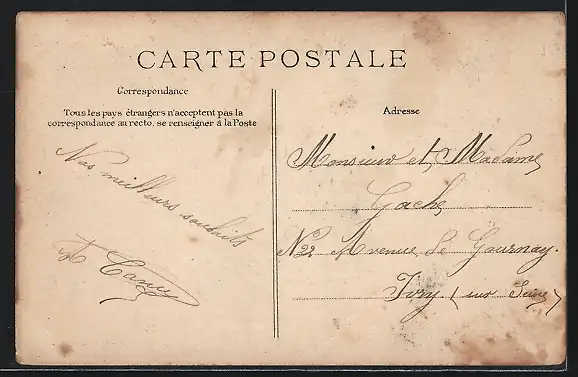 CARTE POSTALE
Correspondance
Tous les pays étrangers n'acceptent pas la
correspondance au recto, se renseigner à la Poste
Adresse
Nos meilleurs souhaits
Monsieur et Madame
Gache
N22 Avenue de Gournay.
Ivry (sur Seine)